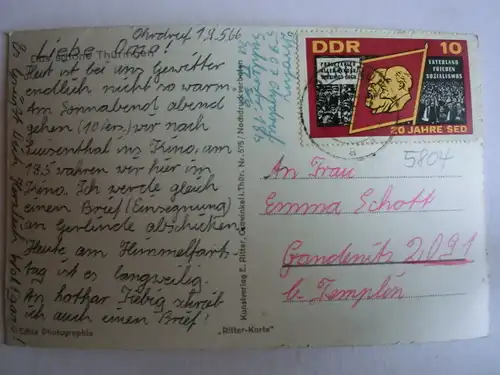 Ohrdruf 19.5.66
Das schöne Thüringen
Liebe Oma!
Heut ist bei uns Gewitter
endlich nicht so warm.
Am Sonnabend abend
gehen (10 Pers.) wir nach
Luisenthal ins Kino, am
18.5 waren wir hier im
Kino. Ich werde gleich
einen Brief (Einsegnung)
an Gerlinde abschicken
Heute am Himmelfarts-
tag ist es langweilig.
An Lothar Fiebig schreib
ich auch einen Brief!
Echte Photographie
"Ritter-Karte"
Kunstverlag E. Ritter, Crawinkel i. Thür. Nr. 575 / Nachdruck verboten
Es grüßt Dich herzlich Wolfgang
DDR 10
VATERLAND
FRIEDEN
SOZIALISMUS
20 JAHRE SED
5804
An Frau
Emma Schott
Gandenitz 2091
b. Templin